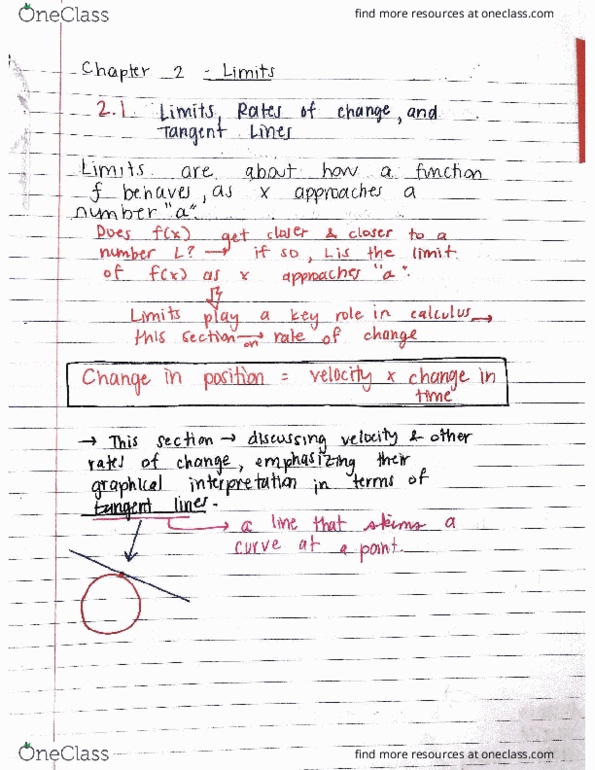 OneClass
find more resources at oneclass.com
Chapter 2 - Limits
2.1. Limits, Rates of change, and
Tangent Lines
Limits are about how a function
f behaves, as x approaches a
number "a".
Does f(x) get closer & closer to a
number L? → if so, L is the limit
of f(x) as x approaches "a".
Limits play a key role in calculus →
this section → on rate of change
Change in position = velocity x change in
time
→ This section → discussing velocity & other
rates of change, emphasizing their
graphical interpretation in terms of
tangent lines.
→ a line that skims a
curve at a point.
OneClass
find more resources at oneclass.com